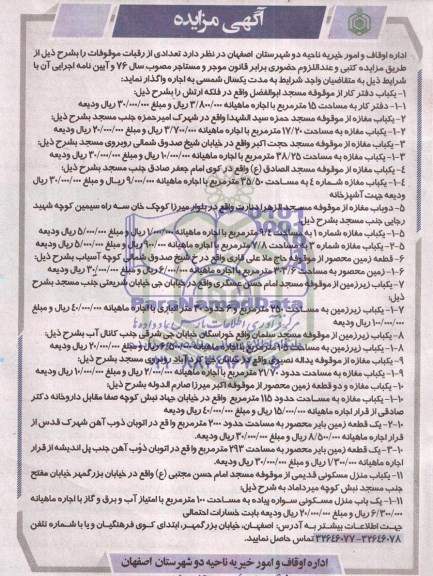 آگهی مزایده
اداره اوقاف و امور خیریه ناحیه دو شهرستان اصفهان در نظر دارد تعدادی از رقبات موقوفات را بشرح ذیل از
طریق مزایده کتبی و عنداللزوم حضوری برابر قانون موجر و مستاجر مصوب سال ۷۶ و آیین نامه اجرایی آن با
شرایط ذیل به متقاضیان واجد شرایط به مدت یکسال شمسی به اجاره واگذار نماید:
۱- یکباب دفتر کار از موقوفه مسجد ابوالفضل واقع در فلکه ارتش را بشرح ذیل:
۱-۱- دفتر کار به مساحت ۱۵ مترمربع با اجاره ماهیانه ۳/۸۰۰/۰۰۰ ریال و مبلغ ۳۰/۰۰۰/۰۰۰ ریال ودیعه
۲- یکباب مغازه از موقوفه مسجد حمزه سید الشهدا واقع در شهرک امیرحمزه جنب مسجد بشرح ذیل:
۱-۲- یکباب مغازه به مساحت ۱۷/۲۰ مترمربع با اجاره ماهیانه ۳/۷۰۰/۰۰۰ ریال و مبلغ ۲۰/۰۰۰/۰۰۰ ریال ودیعه
۳- یکباب مغازه از موقوفه مسجد حجت اکبر واقع در خیابان شیخ صدوق شمالی روبروی مسجد بشرح ذیل:
۱-۳- یکباب مغازه به مساحت ۳۸/۲۵ مترمربع با اجاره ماهیانه ۱۰/۰۰۰/۰۰۰ ریال و مبلغ ۳۰/۰۰۰/۰۰۰ ریال ودیعه
۴- یکباب مغازه از موقوفه مسجد الصادق (ع) واقع در کوی امام جعفر صادق جنب مسجد بشرح ذیل:
۱-۴- یکباب مغازه شماره ۴ به مساحت ۳۵/۵۰ مترمربع با اجاره ماهیانه ۹/۰۰۰/۰۰۰ ریال و مبلغ ۳۰/۰۰۰/۰۰۰ ریال
ودیعه جهت آشپزخانه
۵- دوباب مغازه از موقوفه مسجد الزهرا دیارت واقع در بلوار میرزا کوچک خان سه راه سیمین کوچه شهید
رجایی جنب مسجد بشرح ذیل:
۱-۵- یکباب مغازه شماره ۱ به مساحت ۷/۴ مترمربع با اجاره ماهیانه ۱/۰۰۰/۰۰۰ ریال و مبلغ ۵/۰۰۰/۰۰۰ ریال ودیعه
۲-۵- یکباب مغازه شماره ۳ به مساحت ۷/۸ مترمربع با اجاره ماهیانه ریال و مبلغ ۵/۰۰۰/۰۰۰ ریال ودیعه
۶- قطعه زمین محصور از موقوفه حاج ملا علی کاری واقع در خ شیخ صدوق شمالی کوچه آسیاب بشرح ذیل:
۱-۶- زمین محصور به مساحت ۳۰۳/۶ مترمربع با اجاره ماهیانه ۶/۰۰۰/۰۰۰ ریال و مبلغ ۳۰/۰۰۰/۰۰۰ ریال ودیعه
۷- یکباب زیرزمین از موقوفه مسجد امام حسن عسگری واقع در خیابان جی خیابان شریعتی جنب مسجد بشرح
ذیل:
۱-۷- یکباب زیرزمین به مساحت ۲۵۰ مترمربع و حدود ۳۰ متر انباری با اجاره ماهیانه ریال و مبلغ
۱۰۰/۰۰۰/۰۰۰ ریال ودیعه
۸- یکباب زیرزمین از موقوفه مسجد سلمان واقع خوراسگان خیابان جی شرقی جنب کانال آب بشرح ذیل:
۱-۸- یکباب زیرزمین به مساحت مترمربع با اجاره ماهیانه ریال و مبلغ ۲۰/۰۰۰/۰۰۰ ریال ودیعه
۹- یکباب مغازه از موقوفه یداله نصیری واقع در خیابان روبروی مسجد بشرح ذیل:
۱-۹- یکباب مغازه به مساحت حدود ۲۱/۷۰ مترمربع با اجاره ماهیانه ۲/۰۰۰/۰۰۰ ریال و مبلغ ۱۰/۰۰۰/۰۰۰ ریال ودیعه
۱۰- یکباب مغازه و دو قطعه زمین محصور از موقوفه اکبر میرزا صارم الدوله بشرح ذیل:
۱-۱۰- یکباب مغازه به مساحت حدود ۱۱۵ مترمربع واقع در خیابان جهاد نبش کوچه صفا مقابل داروخانه دکتر
صادقی از قرار اجاره ماهیانه ۱۵/۰۰۰/۰۰۰ ریال و مبلغ ۴۰/۰۰۰/۰۰۰ ریال ودیعه
۲-۱۰- یک قطعه زمین بایر محصور به مساحت حدود ۲۰۰ مترمربع واقع در اتوبان ذوب آهن شهرک قدس از
قرار اجاره ماهیانه ۸/۵۰۰/۰۰۰ ریال و مبلغ ۳۰/۰۰۰/۰۰۰ ریال ودیعه.
۳-۱۰- یک قطعه زمین بایر محصور به مساحت ۲۹۳ مترمربع واقع در اتوبان ذوب آهن جنب پل اندیشه از قرار
اجاره ماهیانه ۱/۳۰۰/۰۰۰ ریال و مبلغ ۳۰/۰۰۰/۰۰۰ ریال ودیعه.
۱۱- یکباب منزل مسکونی قدیمی از موقوفه مسجد امام حسن مجتبی (ع) واقع در خیابان بزرگمهر خیابان مفتح
جنب مسجد نبش کوچه میرداماد به شرح ذیل:
۱-۱۱- یک باب منزل مسکونی سواره پیاده به مساحت ۱۰۰ مترمربع با امتیاز آب و برق و گاز با اجاره ماهیانه
۶/۳۰۰/۰۰۰ ریال و مبلغ ۲۰/۰۰۰/۰۰۰ ریال ودیعه بابت خسارات احتمالی
جهت اطلاعات بیشتر به آدرس: اصفهان، خیابان بزرگمهر، ابتدای کوی فرهنگیان و یا با شماره تلفن
۳۲۶۴۶۰۷۷-۳۲۶۴۶۰۷۸ تماس حاصل نمایید.
اداره اوقاف و امور خیریه ناحیه دو شهرستان اصفهان
ParsNamadData